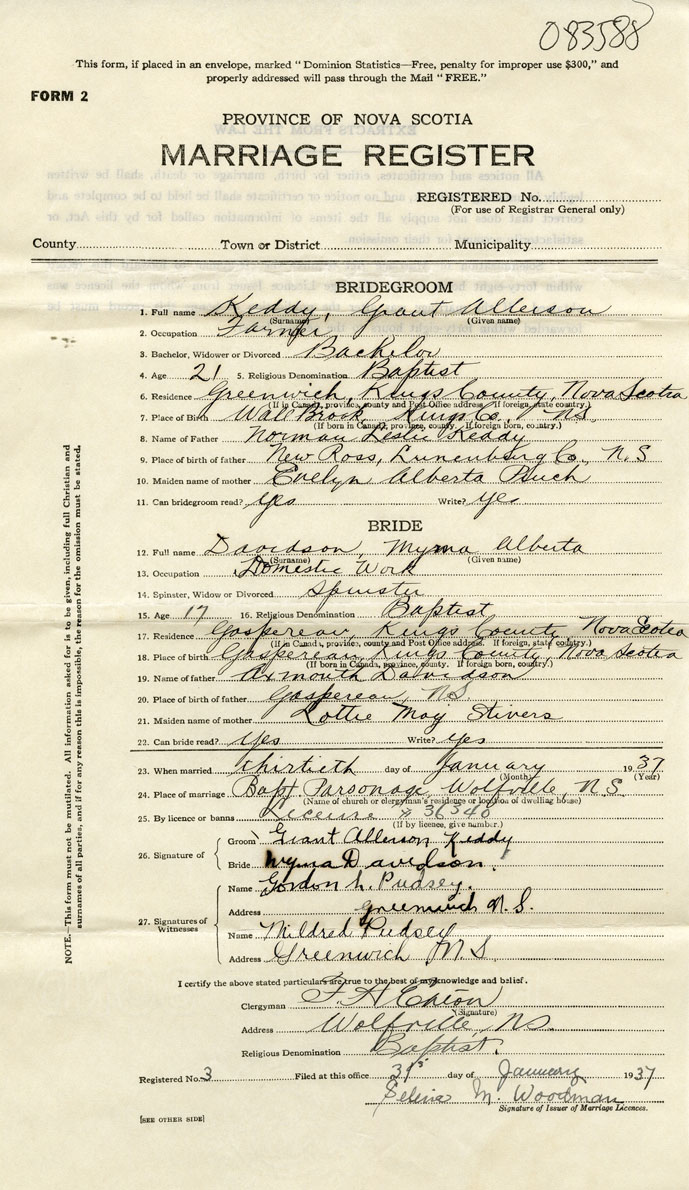 083588
This form, if placed in an envelope, marked "Dominion Statistics—Free, penalty for improper use $300," and
properly addressed will pass through the Mail "FREE."
FORM 2
PROVINCE OF NOVA SCOTIA
MARRIAGE REGISTER
REGISTERED No.
(For use of Registrar General only)
County Town or District Municipality
BRIDEGROOM
1. Full name Keddy, Grant Allerson
(Surname) (Given name)
2. Occupation Farmer
3. Bachelor, Widower or Divorced Bachelor
4. Age 21 5. Religious Denomination Baptist
6. Residence Greenwich, Kings County, Nova Scotia
(If in Canada, province, county and Post Office address. If foreign, state country.)
7. Place of Birth Wall Brook, Kings Co., N.S.
(If born in Canada, province, county. If foreign born, country.)
8. Name of Father Norman Leslie Keddy
9. Place of birth of father New Ross, Lunenburg Co., N.S
10. Maiden name of mother Evelyn Alberta
11. Can bridegroom read? yes Write? yes
BRIDE
12. Full name Davidson, Myrna Alberta
(Surname) (Given name)
13. Occupation Domestic Work
14. Spinster, Widow or Divorced Spinster
15. Age 17 16. Religious Denomination Baptist
17. Residence Gaspereau, Kings County, Nova Scotia
(If in Canada, province, county and Post Office address. If foreign, state country.)
18. Place of birth Gaspereau, Kings County, Nova Scotia
(If born in Canada, province, county. If foreign born, country.)
19. Name of father Davidson
20. Place of birth of father Gaspereau, N.S
21. Maiden name of mother Lottie May Stivers
22. Can bride read? yes Write? yes
23. When married thirtieth day of January 1937
(Month) (Year)
24. Place of marriage Bapt. Parsonage, Wolfville, N.S.
(Name of church or clergyman's residence or location of dwelling house)
25. By licence or banns License # 36340
(If by licence, give number.)
26. Signature of
Groom Grant Allerson Keddy
Bride Myrna Davidson.
27. Signatures of Witnesses
Name Gordon L. Pudsey.
Address Greenwich N.S.
Name Mildred Pudsey
Address Greenwich N.S
I certify the above stated particulars are true to the best of my knowledge and belief.
Clergyman F. H. Eaton
(Signature)
Address Wolfville, N.S.
Religious Denomination Baptist.
Registered No. 3 Filed at this office 31s day of January 1937
Selina M. Woodman
Signature of Issuer of Marriage Licences.
[SEE OTHER SIDE]
NOTE.—This form must not be mutilated. All information asked for is to be given, including full Christian and
surnames of all parties, and if for any reason this is impossible, the reason for the omission must be stated.